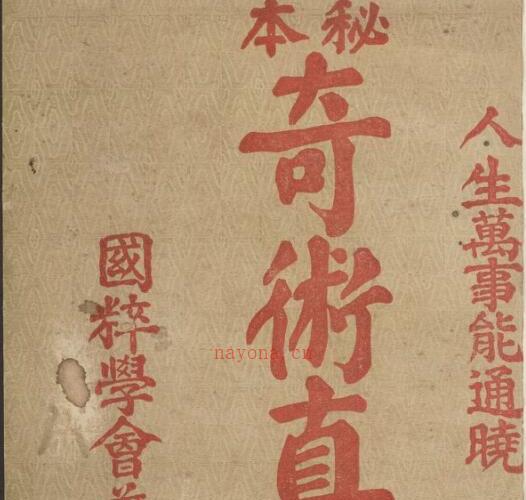 人生萬事能通曉
秘本
奇術真
國粹學會
nayona.cn